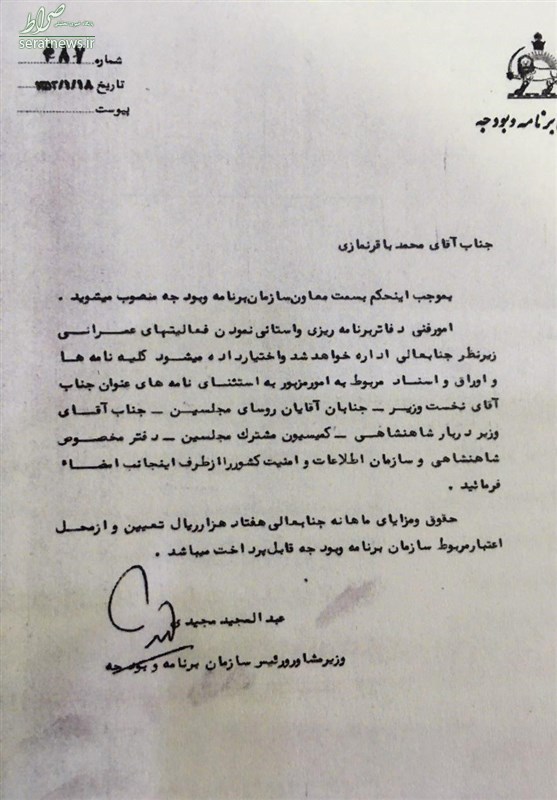 صراط
seratnews.ir
شماره ۴۸۷
تاریخ ۱۳۵۲/۱/۱۸
پیوست
برنامه و بودجه
جناب آقای محمد باقر نمازی
بموجب اینحکم بسمت معاون سازمان برنامه وبود جه منصوب میشوید .
امورفنی د فاتر برنامه ریزی واستانی نمودن فعالیتهای عمرانی
زیرنظر جنابعالی اداره خواهد شد واختیارداد ه میشود کلیه نامه ها
و اوراق و اسناد مربوط به امورمزبور به استثنای نامه های عنوان جناب
آقای نخست وزیر ــ جنابان آقایان روسای مجلسین ــ جناب آقای
وزیر دربار شاهنشاهی ــ کمیسیون مشترك مجلسین ــ دفتر مخصوص
شاهنشاهی و سازمان اطلاعات و امنیت کشوررا ازطرف اینجانب امضاء
فرمائید .
حقوق ومزایای ماهانه جنابعالی هفتاد هزارریال تعیین و ازمحل
اعتبارمربوط سازمان برنامه وبود جه قابل پرداخت میباشد .
عبد المجید مجیدی
وزیرمشاورورئیس سازمان برنامه و بودجه